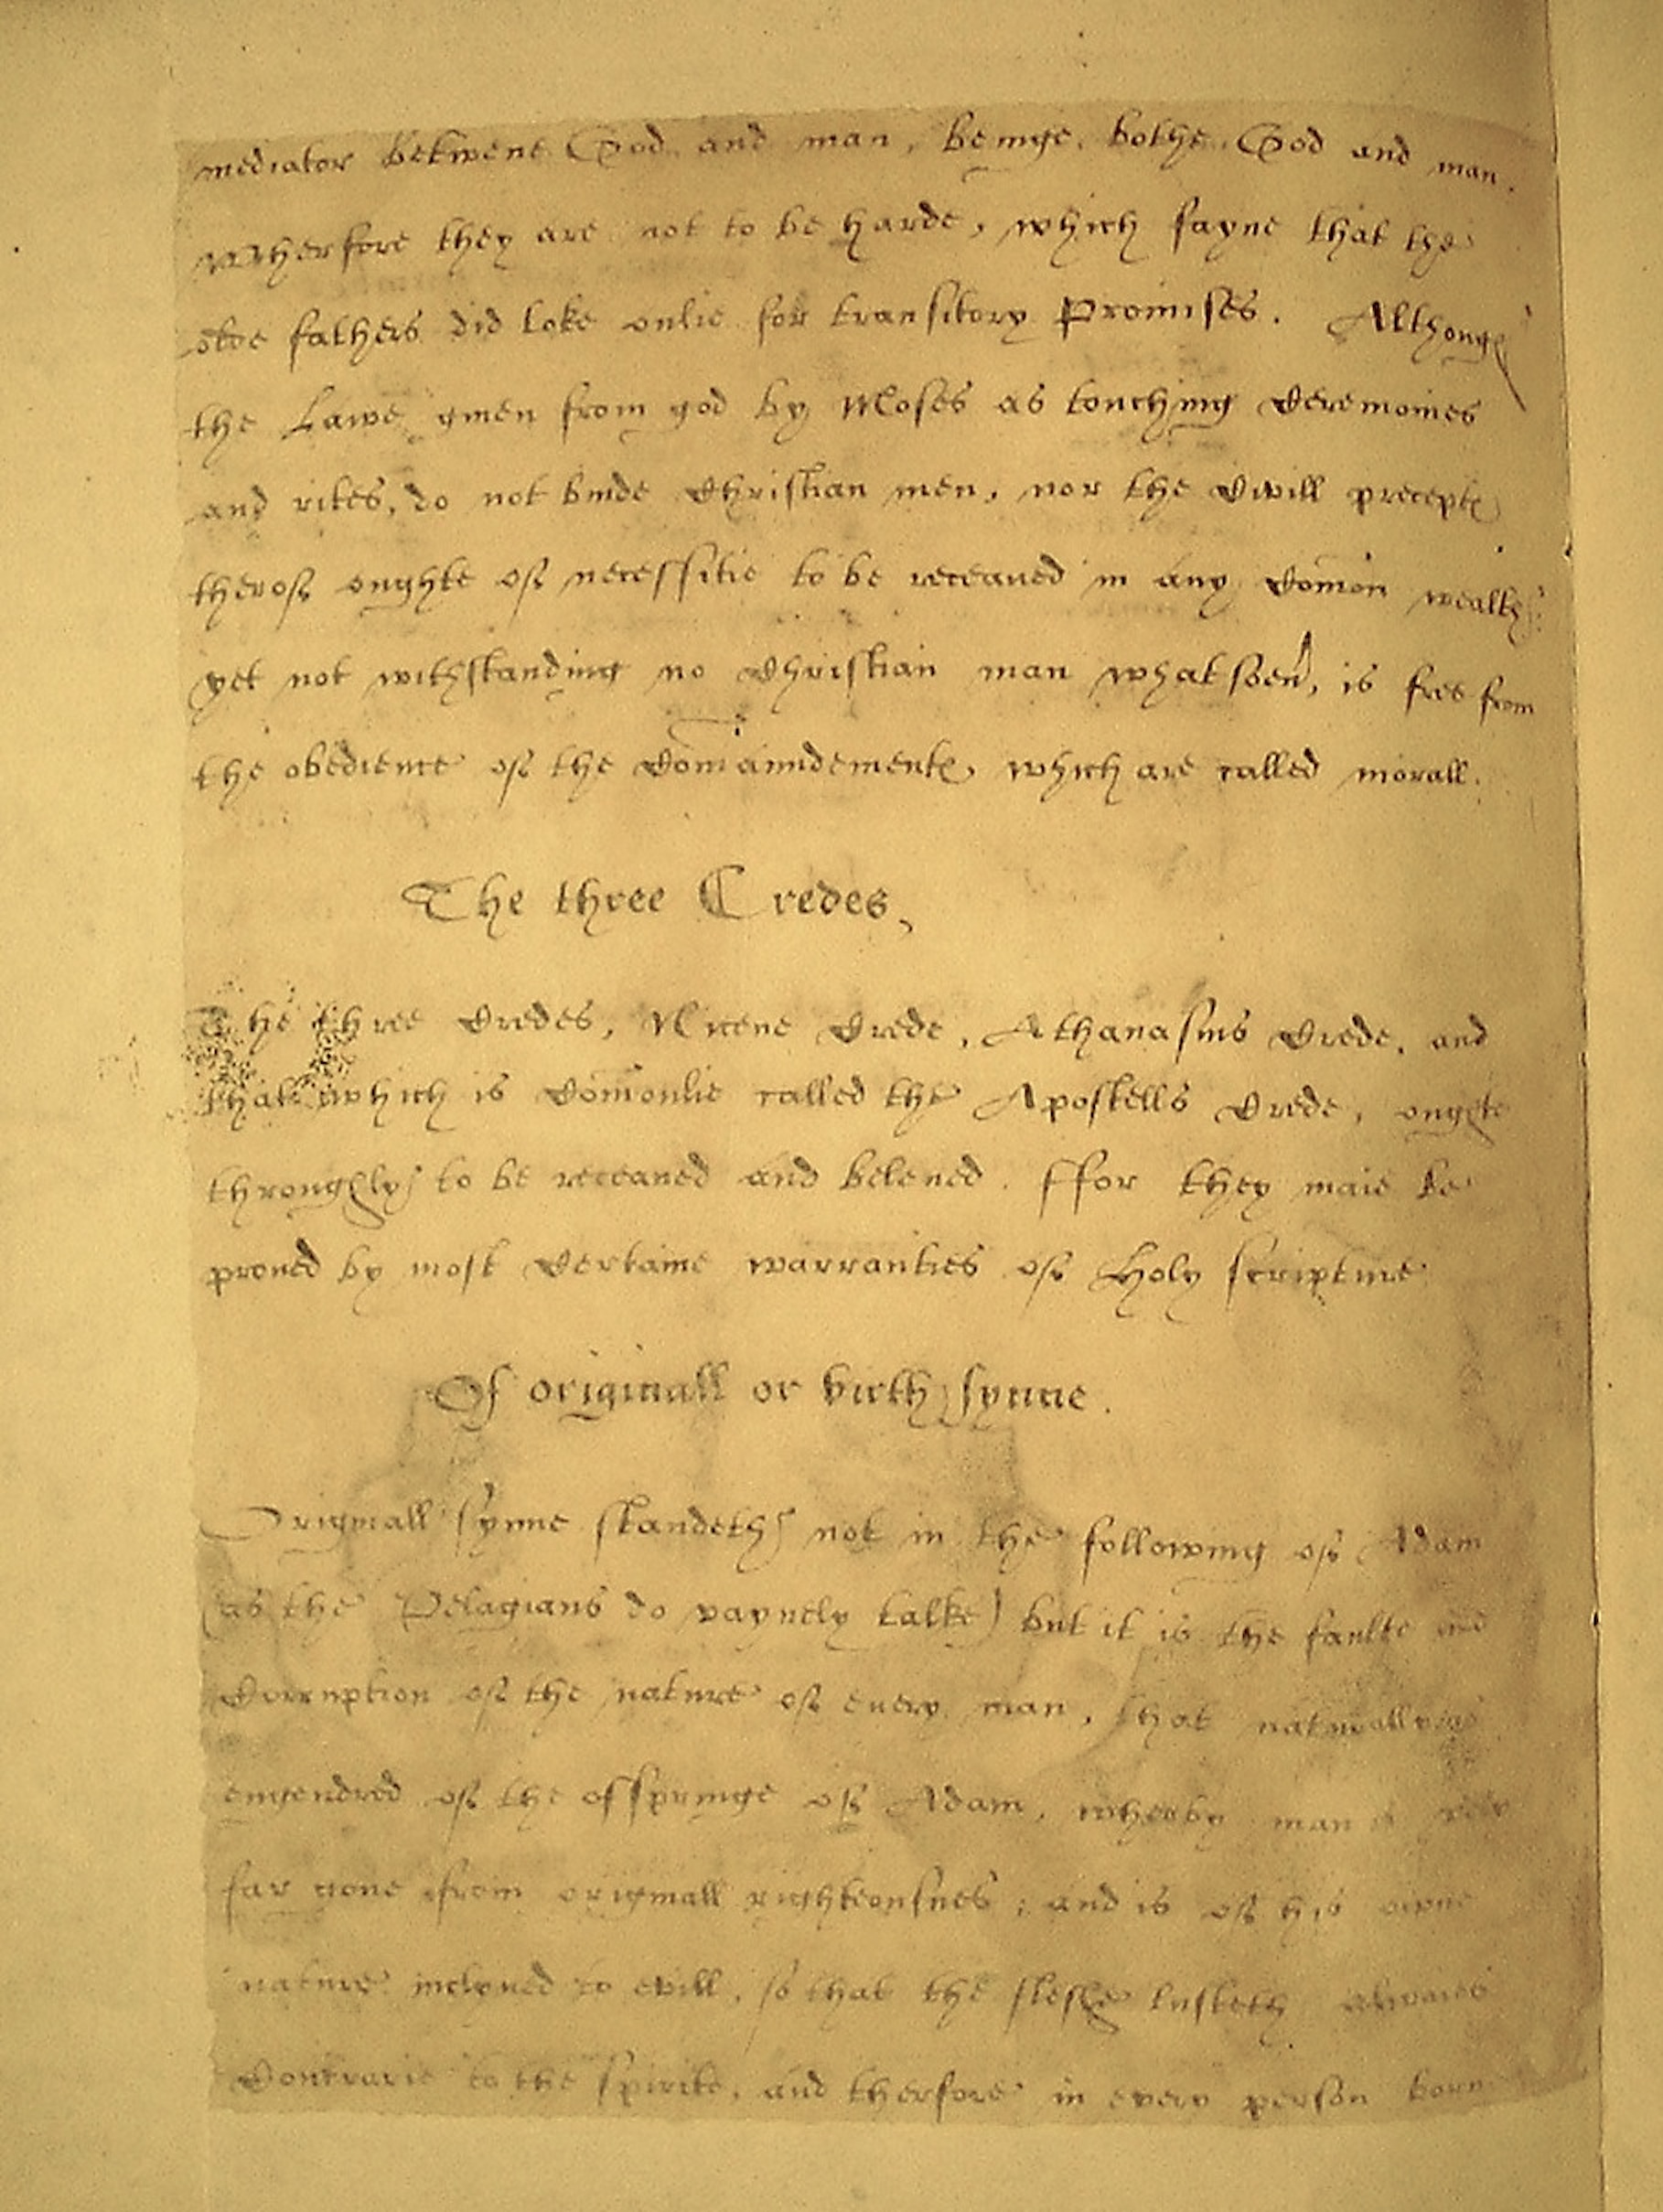 mediator betwene God and man, beinge bothe God and man.
Wherfore they are not to be harde, which sayne that the
olde fathers did loke onlie for transitory Promises. Although
the Lawe giuen from god by Moses as touching Ceremonies
and rites, do not binde Christian men, nor the Civill precepts
therof, oughte of necessitie to be receaued in any comon wealth:
yet not withstanding no Christian man whatsoeu, is free from
the obedience of the Comaundements which are called morall.
The three Credes,
The three Credes, Nicene Crede, Athanasius Crede, and
that which is Comonlie called the Apostells Crede, oughte
throughly to be receaued and beleued. ffor they maie be
proued by most Certaine warranties of Holy scripture
Of originall or birth synne.
Originall synne standeth not in the following of Adam
(as the Pelagians do vaynely talke) but it is the faulte and
Corruption of the nature of euery man, that naturally is
engendred of the ofspringe of Adam, wherby man is very
far gone from originall righteousnes; and is of his owne
nature inclyned to evill, so that the fleshe lusteth alwaies
Contrarie to the spirite, and therfore in every person born